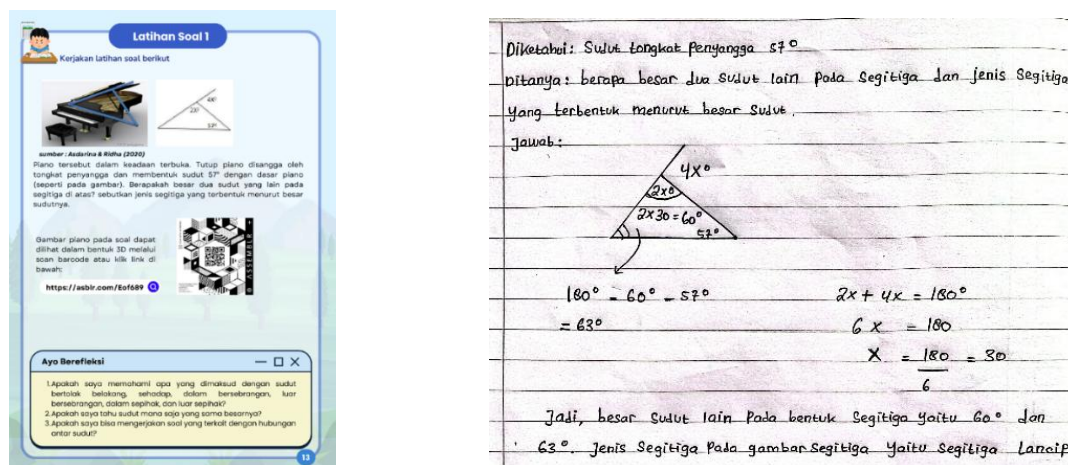 Latihan Soal 1
Kerjakan latihan soal berikut
4x°
2x°
57°
sumber : Asdarina & Ridha (2020)
Piano tersebut dalam keadaan terbuka. Tutup piano disangga oleh
tongkat penyangga dan membentuk sudut 57° dengan dasar piano
(seperti pada gambar). Berapakah besar dua sudut yang lain pada
segitiga di atas? sebutkan jenis segitiga yang terbentuk menurut besar
sudutnya.
Gambar piano pada soal dapat
dilihat dalam bentuk 3D melalui
scan barcode atau klik link di
bawah:
ASSEMBLR
https://asblr.com/Eof689
Ayo Berefleksi
1.Apakah saya memahami apa yang dimaksud dengan sudut
bertolak belakang, sehadap, dalam bersebrangan, luar
bersebrangan, dalam sepihak, dan luar sepihak?
2.Apakah saya tahu sudut mana saja yang sama besarnya?
3.Apakah saya bisa mengerjakan soal yang terkait dengan hubungan
antar sudut?
13
Diketahui : Sudut tongkat Penyangga 57°
Ditanya : berapa besar dua sudut lain pada Segitiga dan jenis Segitiga
yang terbentuk menurut besar Sudut.
Jawab :
4x°
2x°
2x30 = 60°
57°
180° - 60° - 57°
= 63°
2x + 4x = 180°
6x = 180
x = 180 = 30
6
Jadi, besar Sudut lain Pada bentuk Segitiga yaitu 60° dan
63°. Jenis Segitiga Pada gambar Segitiga yaitu Segitiga Lancip